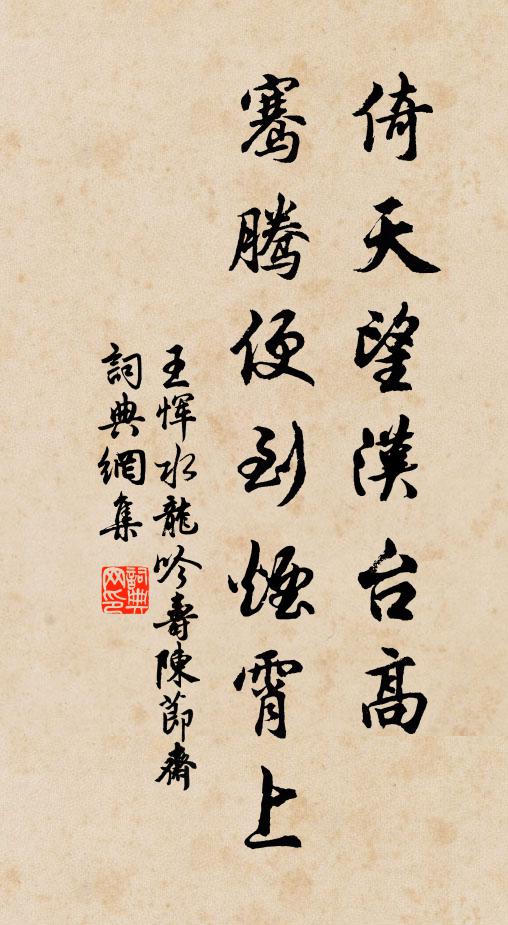 倚天望漢台高
騫騰便到煙霄上
王惲水龍吟壽陳節齋
詞典網集
詞典網印